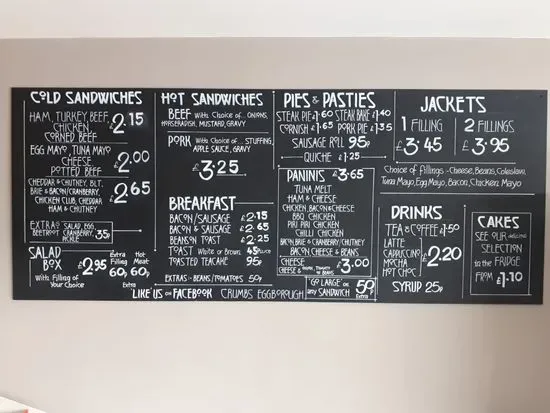 COLD SANDWICHES
HAM, TURKEY, BEEF,
CHICKEN
CORNED BEEF
£2.15
EGG MAYO, TUNA MAYO
CHEESE
POTTED BEEF
£2.00
CHEDDAR & CHUTNEY, BLT,
BRIE & BACON/CRANBERRY
CHICKEN CLUB, CHEDDAR
HAM & CHUTNEY
£2.65
EXTRAS SALAD, EGG,
BEETROOT CRANBERRY
PICKLE 35p
SALAD
BOX £2.95
With Filling of
Your Choice
Extra Filling 60p
Hot Meat 60p
HOT SANDWICHES
BEEF With Choice of... ONIONS,
HORSERADISH, MUSTARD, GRAVY
PORK With Choice of... STUFFING,
APPLE SAUCE, GRAVY
£3.25
BREAKFAST
BACON/SAUSAGE £2.15
BACON & SAUSAGE £2.65
BEANS ON TOAST £2.25
TOAST White or Brown 45p Slice
TOASTED TEACAKE 95p
EXTRAS - BEANS/TOMATOES 50p
'LIKE' US ON FACEBOOK CRUMBS EGGBOROUGH
PIES & PASTIES
STEAK PIE £1.60 STEAK BAKE £1.40
CORNISH £1.65 PORK PIE £1.35
SAUSAGE ROLL 95p
QUICHE £1.25
PANINIS £3.65
TUNA MELT
HAM & CHEESE
CHICKEN, BACON & CHEESE
BBQ CHICKEN
PIRI PIRI CHICKEN
CHILLI CHICKEN
BACON BRIE & CRANBERRY/CHUTNEY
BACON CHEESE & BEANS
CHEESE £3.00
CHEESE & ONION, TOMATO OR BEANS
'GO LARGE' ON
any SANDWICH 50p
Extra
JACKETS
1 FILLING
£3.45
2 FILLINGS
£3.95
Choice of Fillings - Cheese, Beans, Coleslaw,
Tuna Mayo, Egg Mayo, Bacon, Chicken Mayo
DRINKS
TEA & COFFEE £1.50
LATTE
CAPPUCCINO
MOCHA
HOT CHOC
£2.20
SYRUP 25p
CAKES
SEE OUR delicious
SELECTION
in the FRIDGE
FROM £1.10